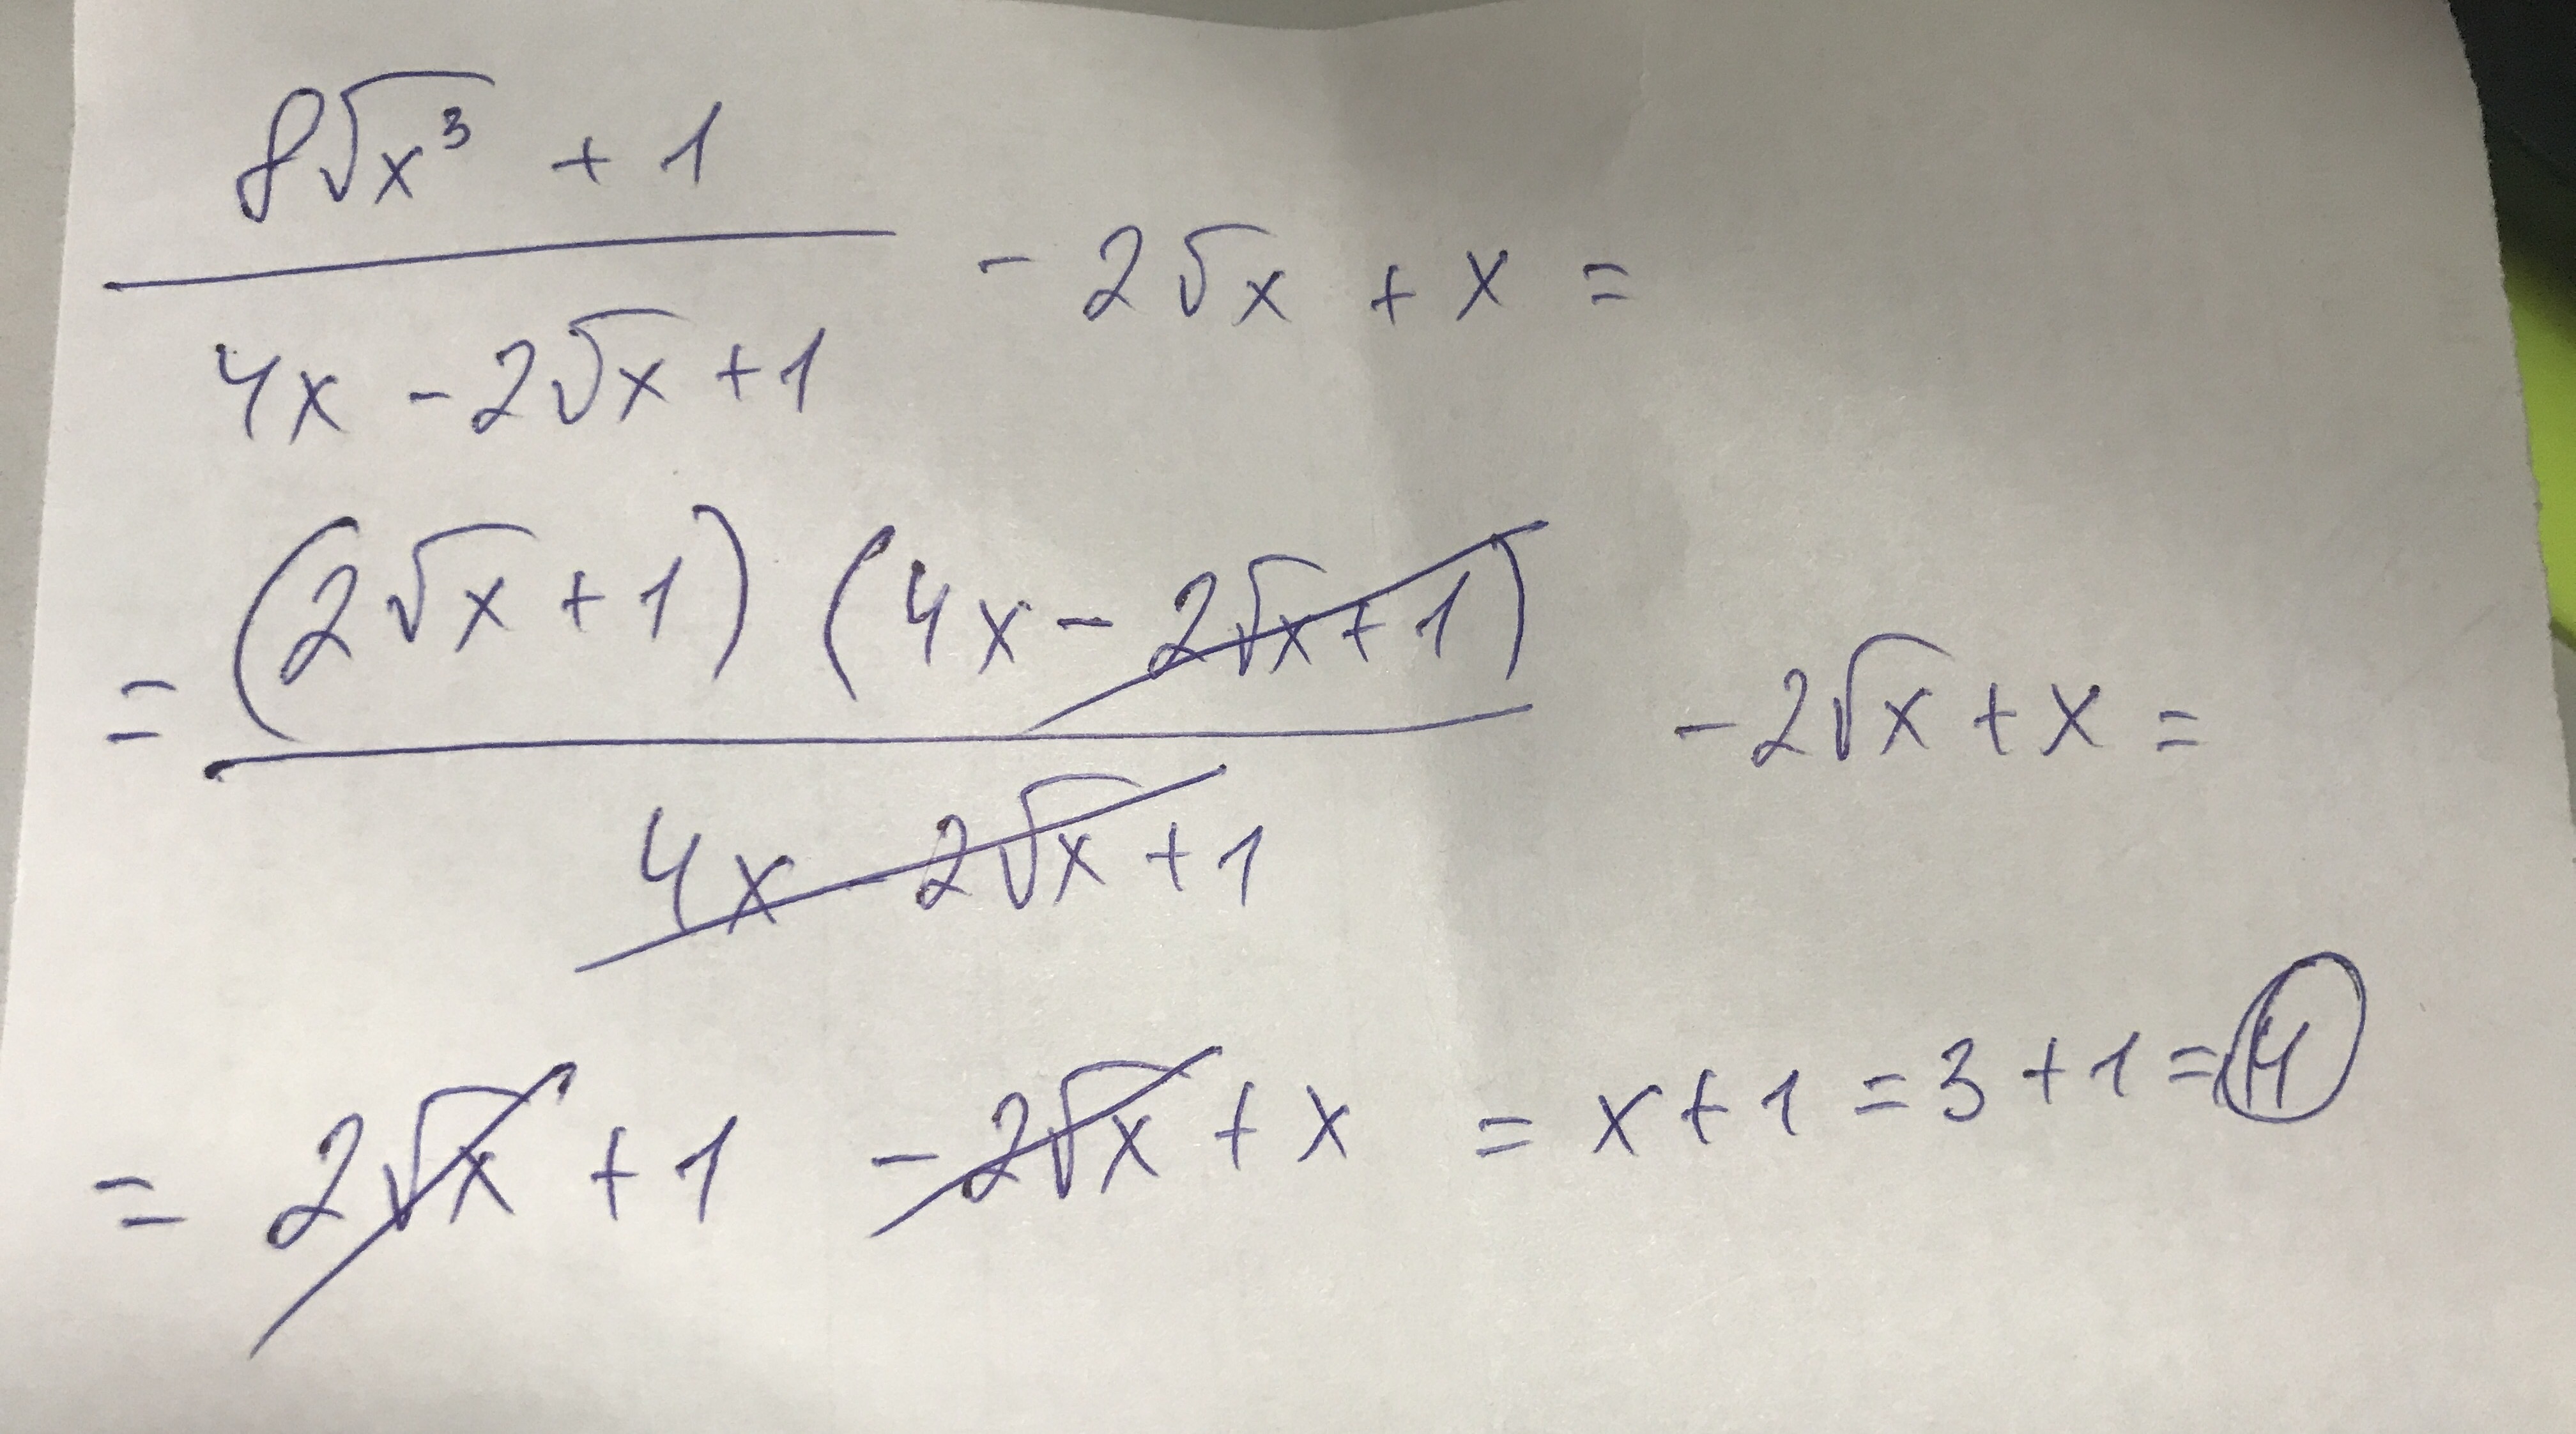 8√x³ + 1
4x - 2√x + 1
- 2√x + x =
= (2√x + 1) (4x - 2√x + 1)
4x - 2√x + 1
- 2√x + x =
= 2√x + 1 - 2√x + x = x + 1 = 3 + 1 = 4